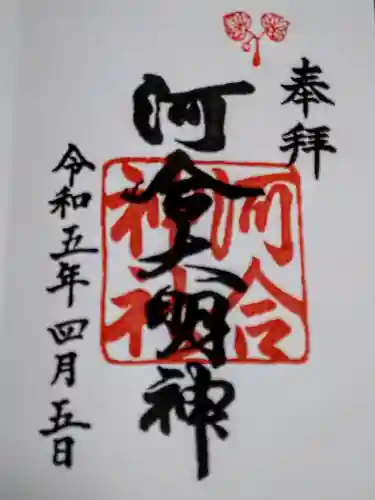 奉拝
河合大明神
河合
神社
令和五年四月五日